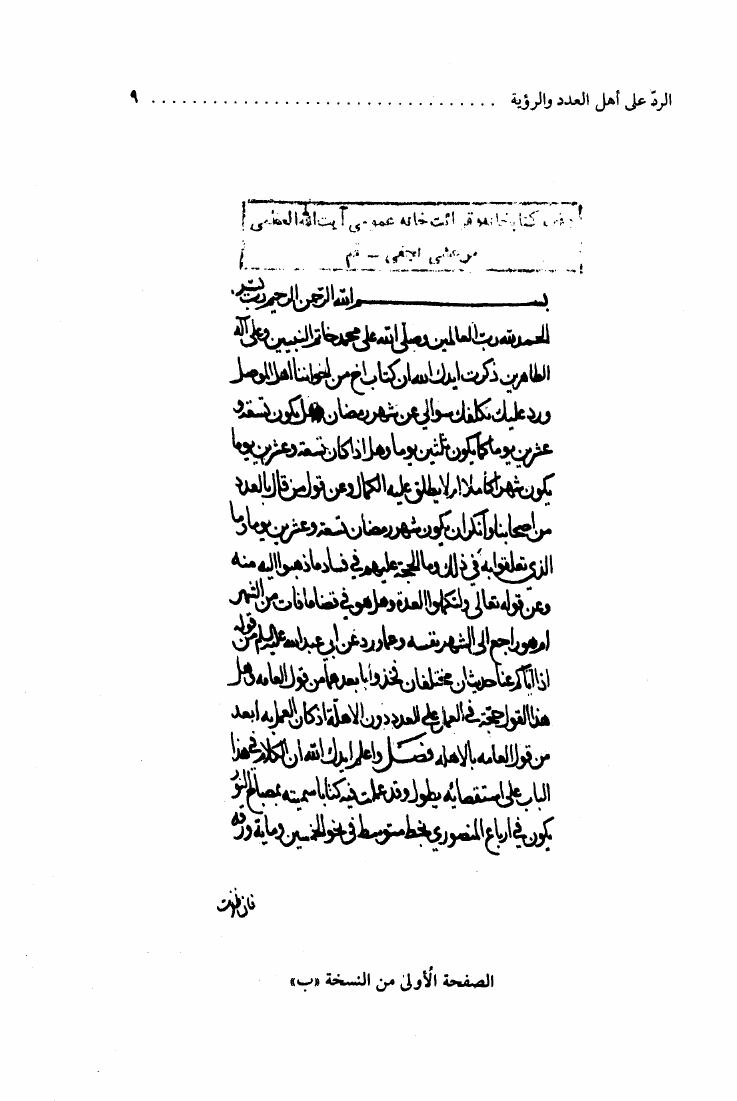 الردّ على أهل العدد والرؤية ................................. ٩
وقف كتابخانه و قرائت خانه عمومى آيت الله العظمى
مرعشى نجفى – قم
بسم الله الرحمن الرحيم رب يسر
الحمد لله رب العالمين وصلى الله على محمد خاتم النبيين وعلى آله
الطاهرين ذكرت ايدك الله ان كتاب اخ من اخواننا اهل الموصل
ورد عليك يكلفك سوالي عن شهر رمضان هل يكون تسعة و
عشرين يوما كما يكون ثلثين يوما وهل اذا كان تسعة وعشرين يوما
يكون شهرا كاملا ام لا يطلق عليه الكمال وعن قول من قال بالعدد
من اصحابنا وانكر ان يكون شهر رمضان تسعة وعشرين يوما وما
الذي تعلقوا به في ذلك وما الحجة عليهم في فساد ما ذهبوا اليه منه
وعن قوله تعالى ولتكملوا العدة وهل هو في قضا ما فات من الشهر
ام هو راجع الى الشهر نفسه وعما ورد عن ابي عبد الله عليه السلم من قوله
اذا اتاكم عنا حديثان مختلفان فخذوا بابعدهما من قول العامه وهل
هذا القول حجة في العمل على العدد دون الاهلة اذ كان العمل به ابعد
من قول العامه بالاهله فصل واعلم ايدك الله ان الكلام في هذا
الباب على استقصائه يطول وقد عملت فيه كتابا سميته بمصابيح النور
يكون في ارباع المنصوري بخط متوسط في نحو الخمسين وماية ورقه
فان ظفرت
الصفحة الأُولىٰ من النسخة «ب»